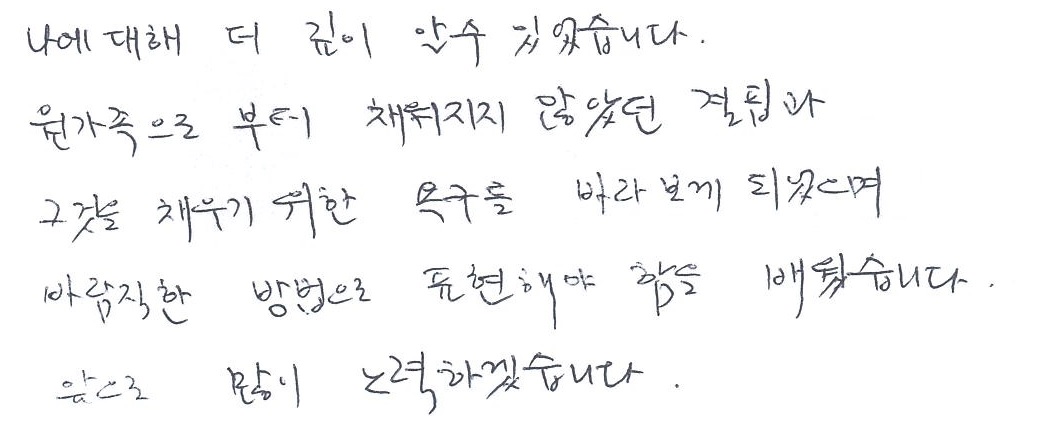 나에 대해 더 깊이 알수 있었습니다.
원가족으로 부터 채워지지 않았던 결핍과
그것을 채우기 위한 욕구를 바라보게 되었으며
바람직한 방법으로 표현해야 함을 배웠습니다.
앞으로 많이 노력하겠습니다.